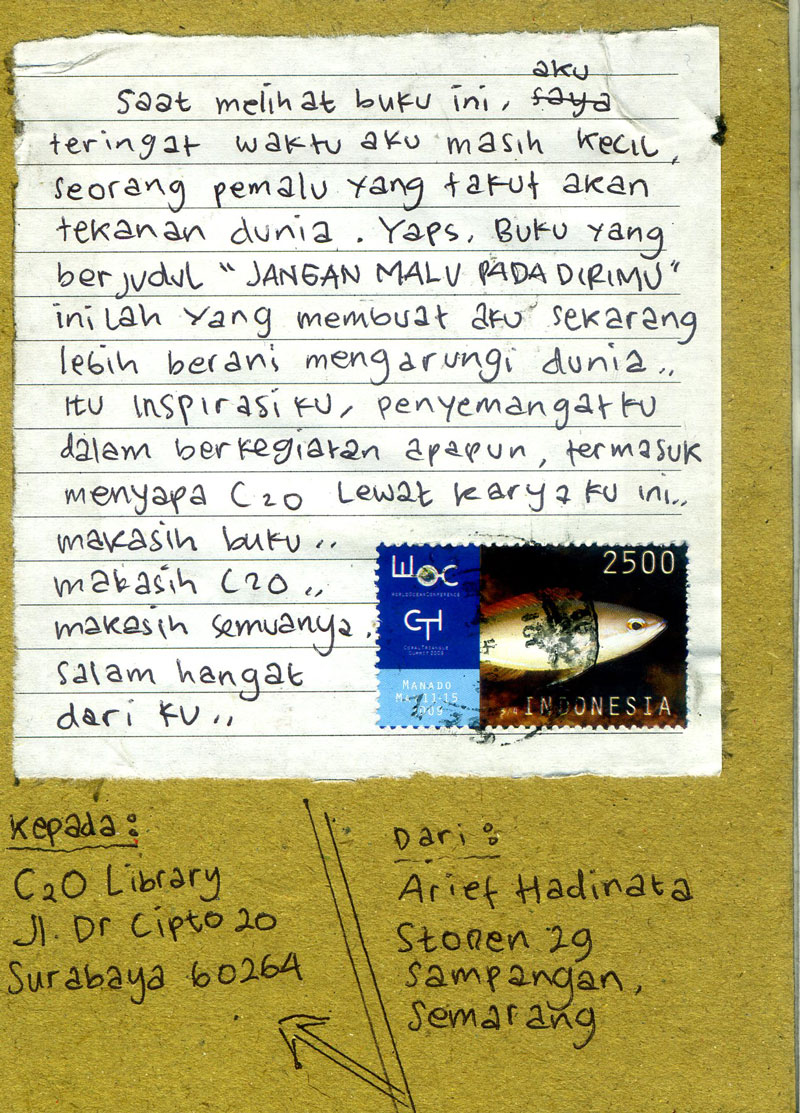 aku
Saat melihat buku ini, saya
teringat waktu aku masih kecil,
seorang pemalu yang takut akan
tekanan dunia. Yaps, Buku yang
berjudul "JANGAN MALU PADA DIRIMU"
inilah yang membuat aku sekarang
lebih berani mengarungi dunia..
itu inspirasiku, penyemangatku
dalam berkegiatan apapun, termasuk
menyapa C2O Lewat karyaku ini..
makasih buku..
makasih C2O..
makasih semuanya.
Salam hangat
dari ku..
WOC
WORLD OCEAN CONFERENCE
CTI
CORAL TRIANGLE
SUMMIT 2009
MANADO
MAY 11-15
2009
2500
INDONESIA
Kepada:
C2O Library
Jl. Dr Cipto 20
Surabaya 60264
Dari:
Arief Hadinata
Stonen 29
Sampangan,
Semarang